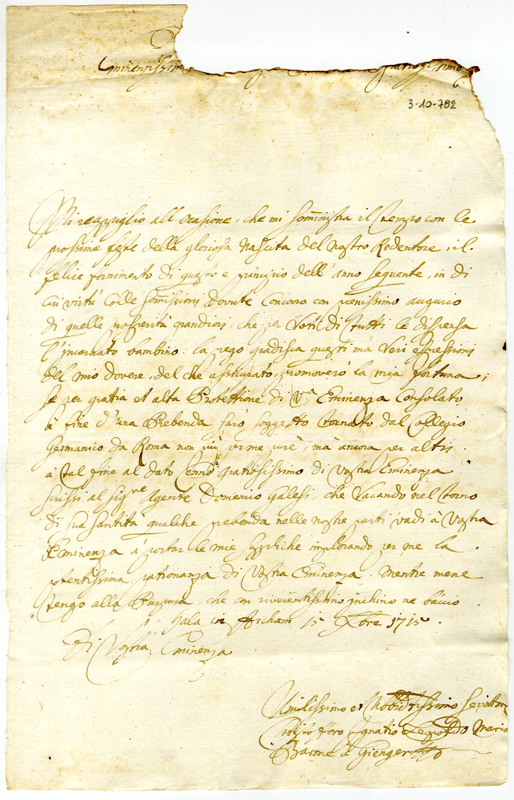 Eminentissimo
3-10-782
Mi rappiglio all'ocasione, che mi somministra il tempo con le
prossime feste della gloriosa nascita del Nostro Redentore, il
felice finimento di questo e principio dell'anno seguente, in di
cui virtù colle somissioni dovute Concorro con pienissimo augurio
di quelle prosperità grandiose, che per voti di tutti le dispensa
l'incarnato bambino. la prego gradisca questi mà veri espressioni
del mio dovere, del che assicurato, promoverò la mia fortuna;
se per gratia et alta Protettione di V.ra Eminenza Consolato
à fine d'una Prebenda sarò soggetto tornato dal Collegio
Germanico da Roma non più per me, mà ancora per altri.
à tal fine al dato Cenno gratiosissimo di Vostra Eminenza
scrissi al sig.re Agente Domenico Galesi, che vacando nel torno
di sua santità qualche prebenda nelle nostre parti vadi à Vostra
Eminenza à portar le mie suppliche implorando per me la
potentissima patronanza di Vostra Eminenza. Mentre mene
tengo alla Purpura che con riverentissimo inchino ne bacio.
Data in 15 Xbre 1715
Di Vostra Eminenza
Umilissimo et Servitore
Ignatio Leopoldo Maria
Barone de Gienger